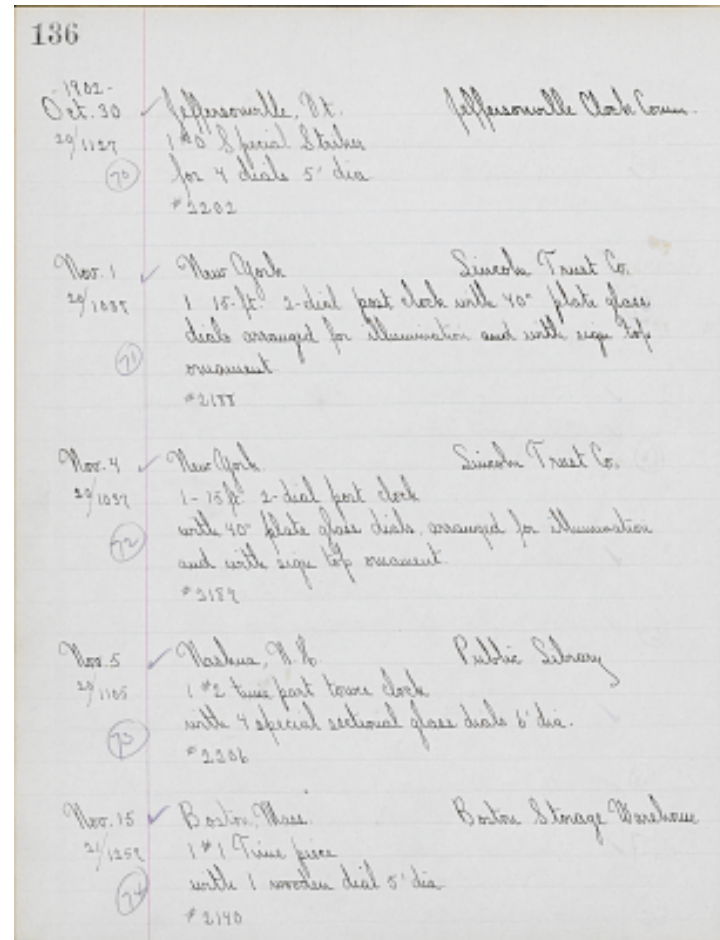 136
- 1902 -
Oct. 30 ✓ Jeffersonville, Vt. Jeffersonville Clock Comm.
20/1127 1 #0 Special Striker
70 for 4 dials 5' dia
#2202
Nov. 1 ✓ New York Lincoln Trust Co.
20/ 1 15-ft. 2-dial post clock with 40" plate glass
dials arranged for illumination and with sign top
71 ornament
#2188
Nov. 4 ✓ New York. Lincoln Trust Co.
20/ 1-15 ft. 2-dial post clock
72 with 40" plate glass dials, arranged for illumination
and with sign top ornament.
#2189
Nov. 5 ✓ Nashua, N.H. Public Library
20/1105 1 #2 time part tower clock
with 4 special sectional glass dials 6' dia.
73 #2206
Nov. 15 ✓ Boston, Mass. Boston Storage Warehouse
21/1259 1 #1 Time piece
74 with 1 wooden dial 5' dia
#2190